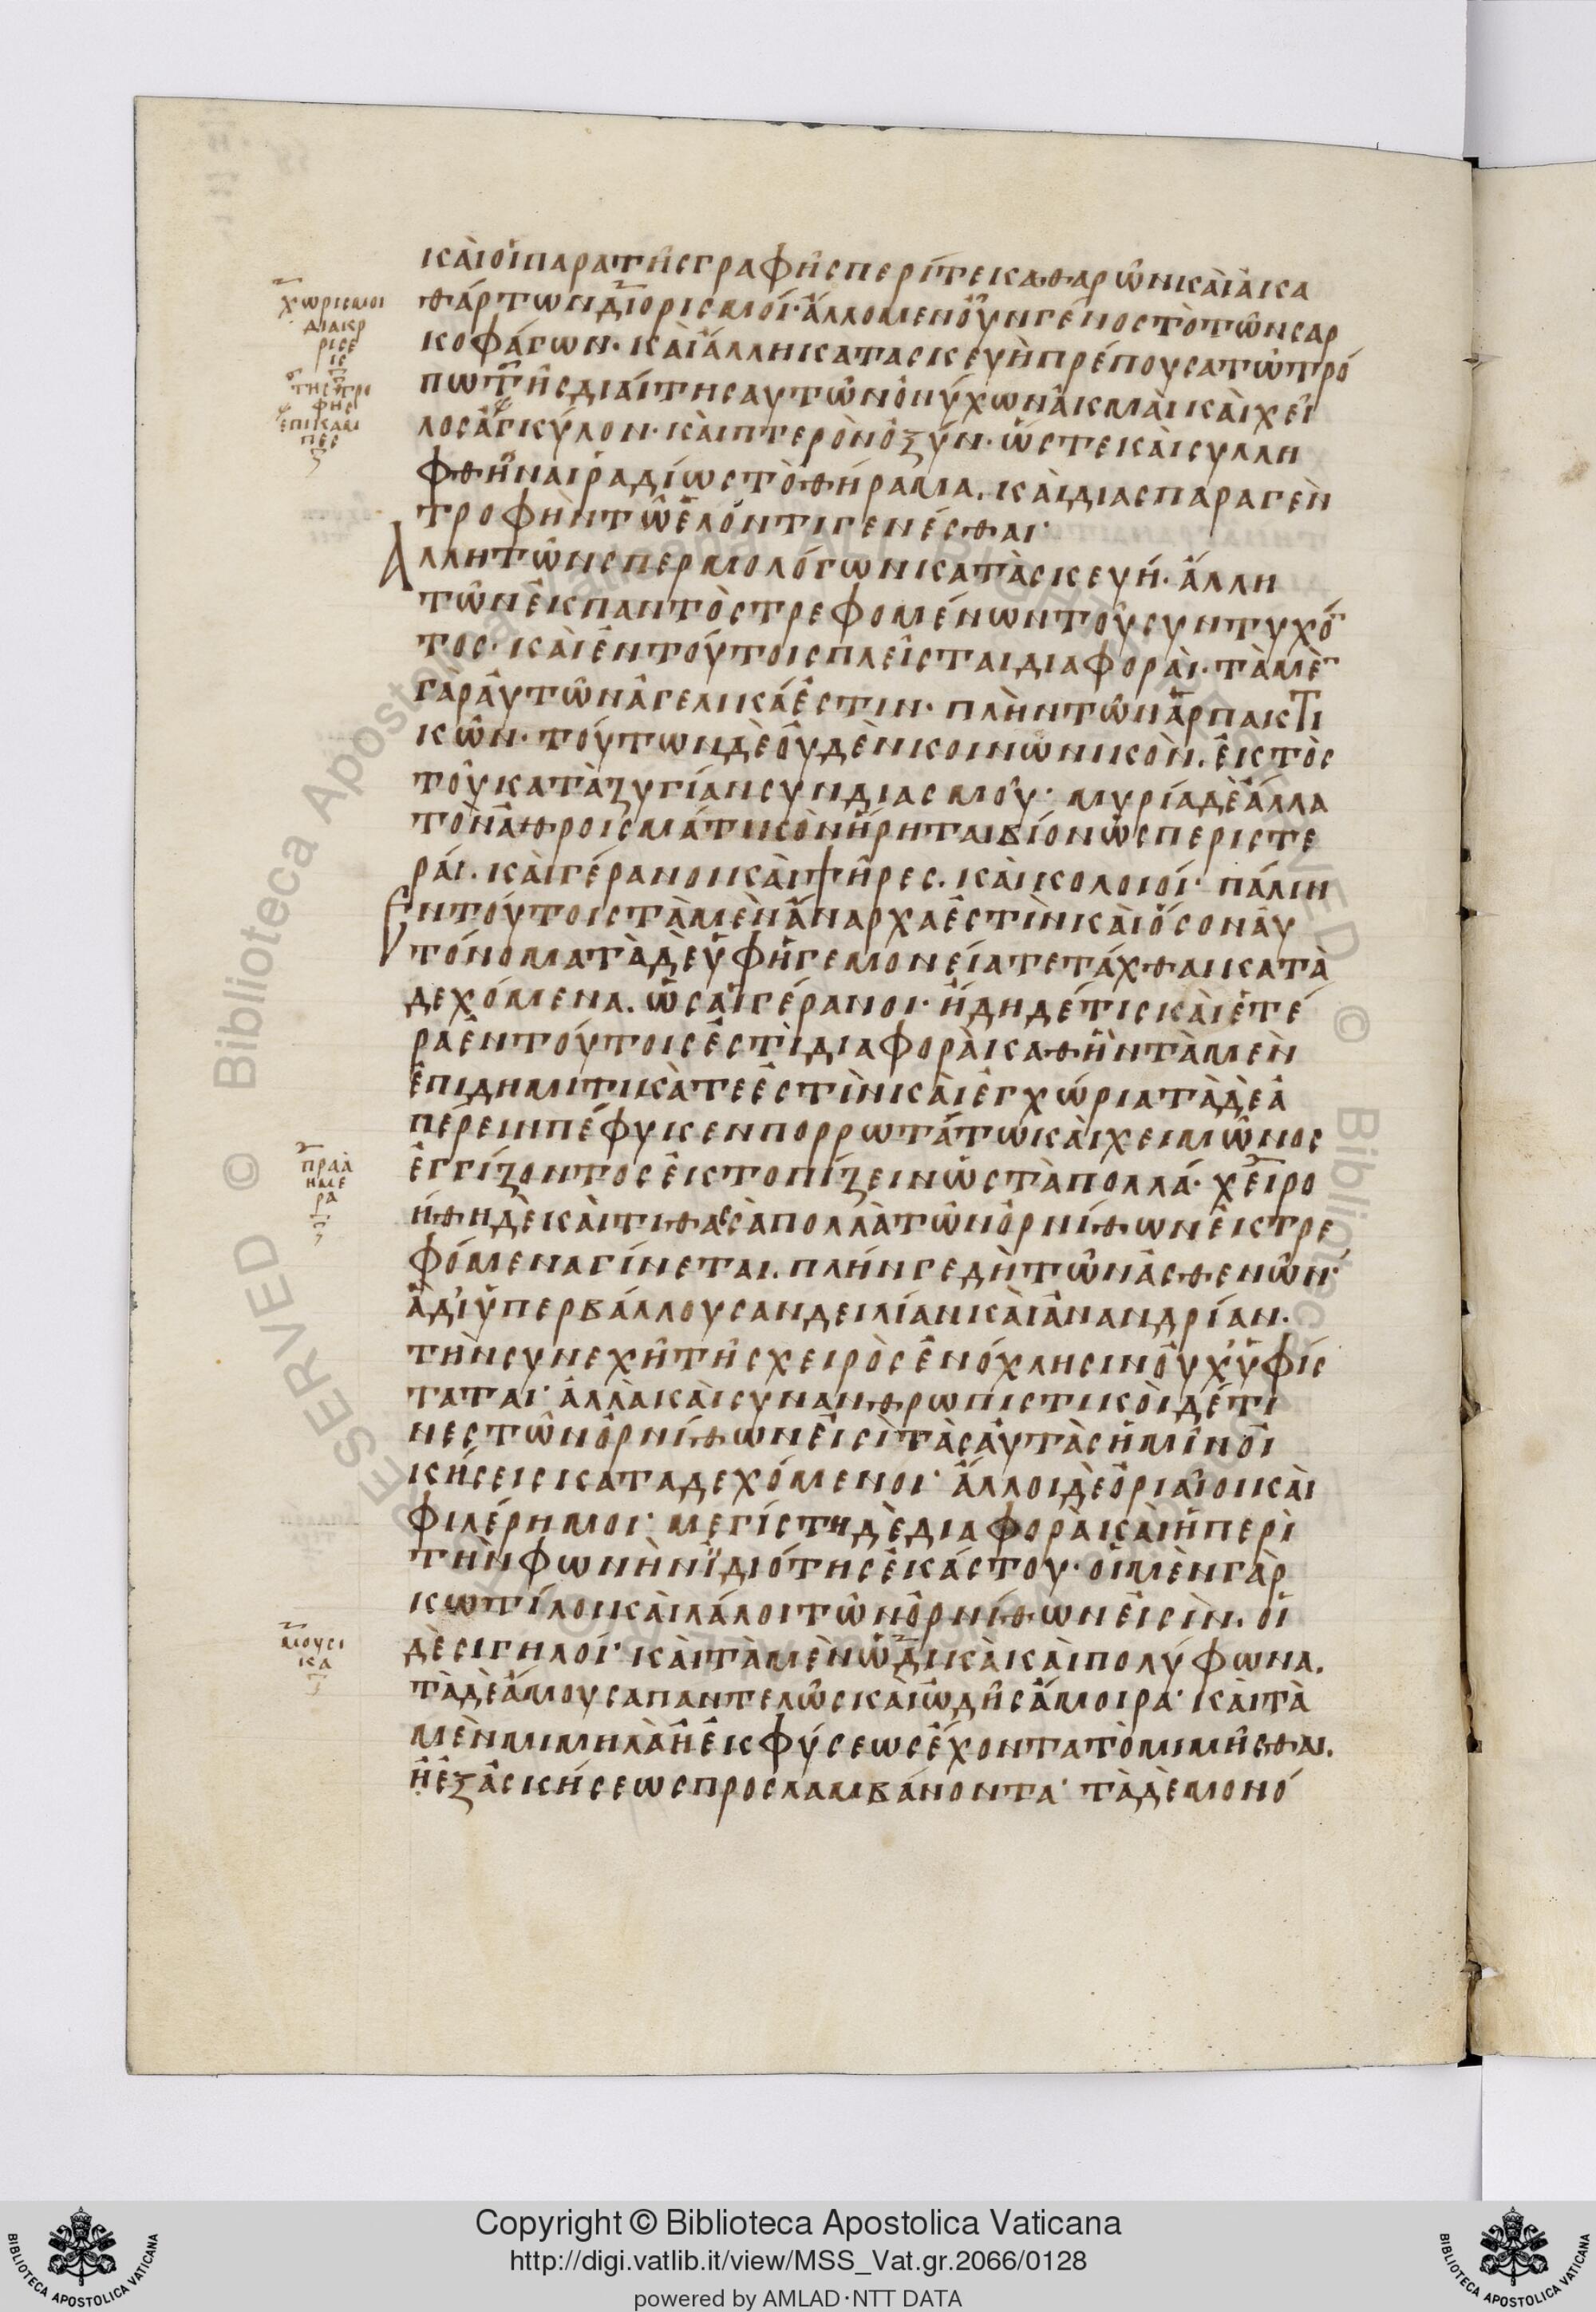 καὶ οἱ παρα τῆς γραφῆς περί τε καθαρῶν καὶ ἀκα
θάρτων διορισμοί· ἄλλο μεν οὖν γένος τὸ τῶν σαρ
κοφάγων· καὶ ἄλλη κατασκευὴ πρέπουσα τῶ τρό
πω τῆς διαίτης αυτῶν ὀνύχων ἀκμαὶ καὶ χεῖ
λος ἀγκύλον· καὶ πτερὸν ὀξύν· ὥστε καὶ συλλη
φθῆναι ῥαδίως τὸ θήραμα. καὶ διασπαραγὲν
τροφὴν τῶ ἑλόντι γενέσθαι·
Αλλη τῶν σπερμολόγων κατὰσκευή· ἄλλη
τῶν ἐκ παντὸς τρεφομένων τοῦ συντυχό
τος· καὶ ἐν τούτοις πλεῖσται διαφοραὶ· τὰ μὲ
γὰρ ἀυτῶν ἀγελικά ἐστιν· πλὴν τῶν ἁρπακτι
κῶν· τούτων δὲ οὐδὲν κοινωνικὸν. ἐκτὸς
τοῦ κατὰ ζυγίαν συνδιασμοῦ· μυρία δὲ ἄλλα
τὸν ἀθροισμάτικὸν ἥρηται βίον ὡς περιστε
ράι. καὶ γέρανοι καὶ ψῆρες. καὶ κολοιοί· πάλιν
Εν τούτοις τὰ μὲν ἄναρχα ἐστὶν καὶ οἷσον ἀυ
τόνομα τὰ δὲ ὑφ ἡγεμονεία τετάχθαι κατὰ
δεχόμενα. ὡς αἱ γέρανοι· ἤδη δέ τις καὶ ἑτέ
ρα ἐν τούτοις ἐστὶ διαφορὰ καθ ἣν τὰ μὲν
ἐπιδημιτικὰ τε ἐστὶν καὶ ἐγχώρια τὰ δὲ ἀ
πέρειν πέφυκεν πορρωτάτω καὶ χειμῶνος
ἐγγίζοντος ἐκτοπίζειν ὡς τὰ πολλά· χειρο
ήθη δὲ καὶ τιθασὰ πολλὰ τῶν ὀρνίθων ἐκτρε
φόμενα γίνεται. πλήν γε δὴ τῶν ἀσθενῶν·
ἃ δι ὑπερβάλλουσαν δειλίαν καὶ ἀνανδρίαν·
τὴν συνεχῆ τῆς χειρὸς ἐνόχλησιν οὐχ ὑφίσ
ταται· ἀλλὰ καὶ συνανθρωπιστικοὶ δέ τι
νες τῶν ὀρνίθων εἰσὶ τὰς ἀυτὰς ἡμῖν οἰ
κήσεις καταδεχόμενοι· ἄλλοι δὲ ὀριαῖοι καὶ
φιλέρημοι· μεγίστη δὲ διαφορὰ καὶ ἡ περὶ
τὴν φωνὴν ϊδιότης ἑκάστου· οἱ μὲν γὰρ
κωτίλοι καὶ λάλοι τῶν ὀρνίθων εἰσὶν. οἱ
δὲ σιγηλοί· καὶ τὰ μὲν ὠδικὰ καὶ πολύφωνα.
τὰ δὲ ἄμουσα παντελῶς καὶ ὠδῆς ἄμοιρα· καὶ τὰ
μὲν μιμηλὰ ἢ ἐκ φύσεως ἔχοντα τὸ μιμῆσθαι.
ἢ ἐξ ἀσκήσεως προσλαμβάνοντα· τὰ δὲ μονό
χωρισμοι
διακρ
ρισε
ις
τῆς τρο
φῆς
επικαμ
πες
πραὰ
ημε
ρα
μουσι
κα
Copyright © Biblioteca Apostolica Vaticana
http://digi.vatlib.it/view/MSS_Vat.gr.2066/0128
powered by AMLAD·NTT DATA
BIBLIOTECA APOSTOLICA VATICANA
BIBLIOTECA APOSTOLICA VATICANA